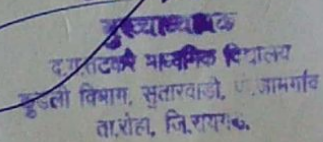 मुख्याध्यापक
द.ग.तटकरे माध्यमिक विद्यालय
कुडली विभाग, सुतारवाडी, पो.जामगांव
ता.रोहा, जि.रायगड.